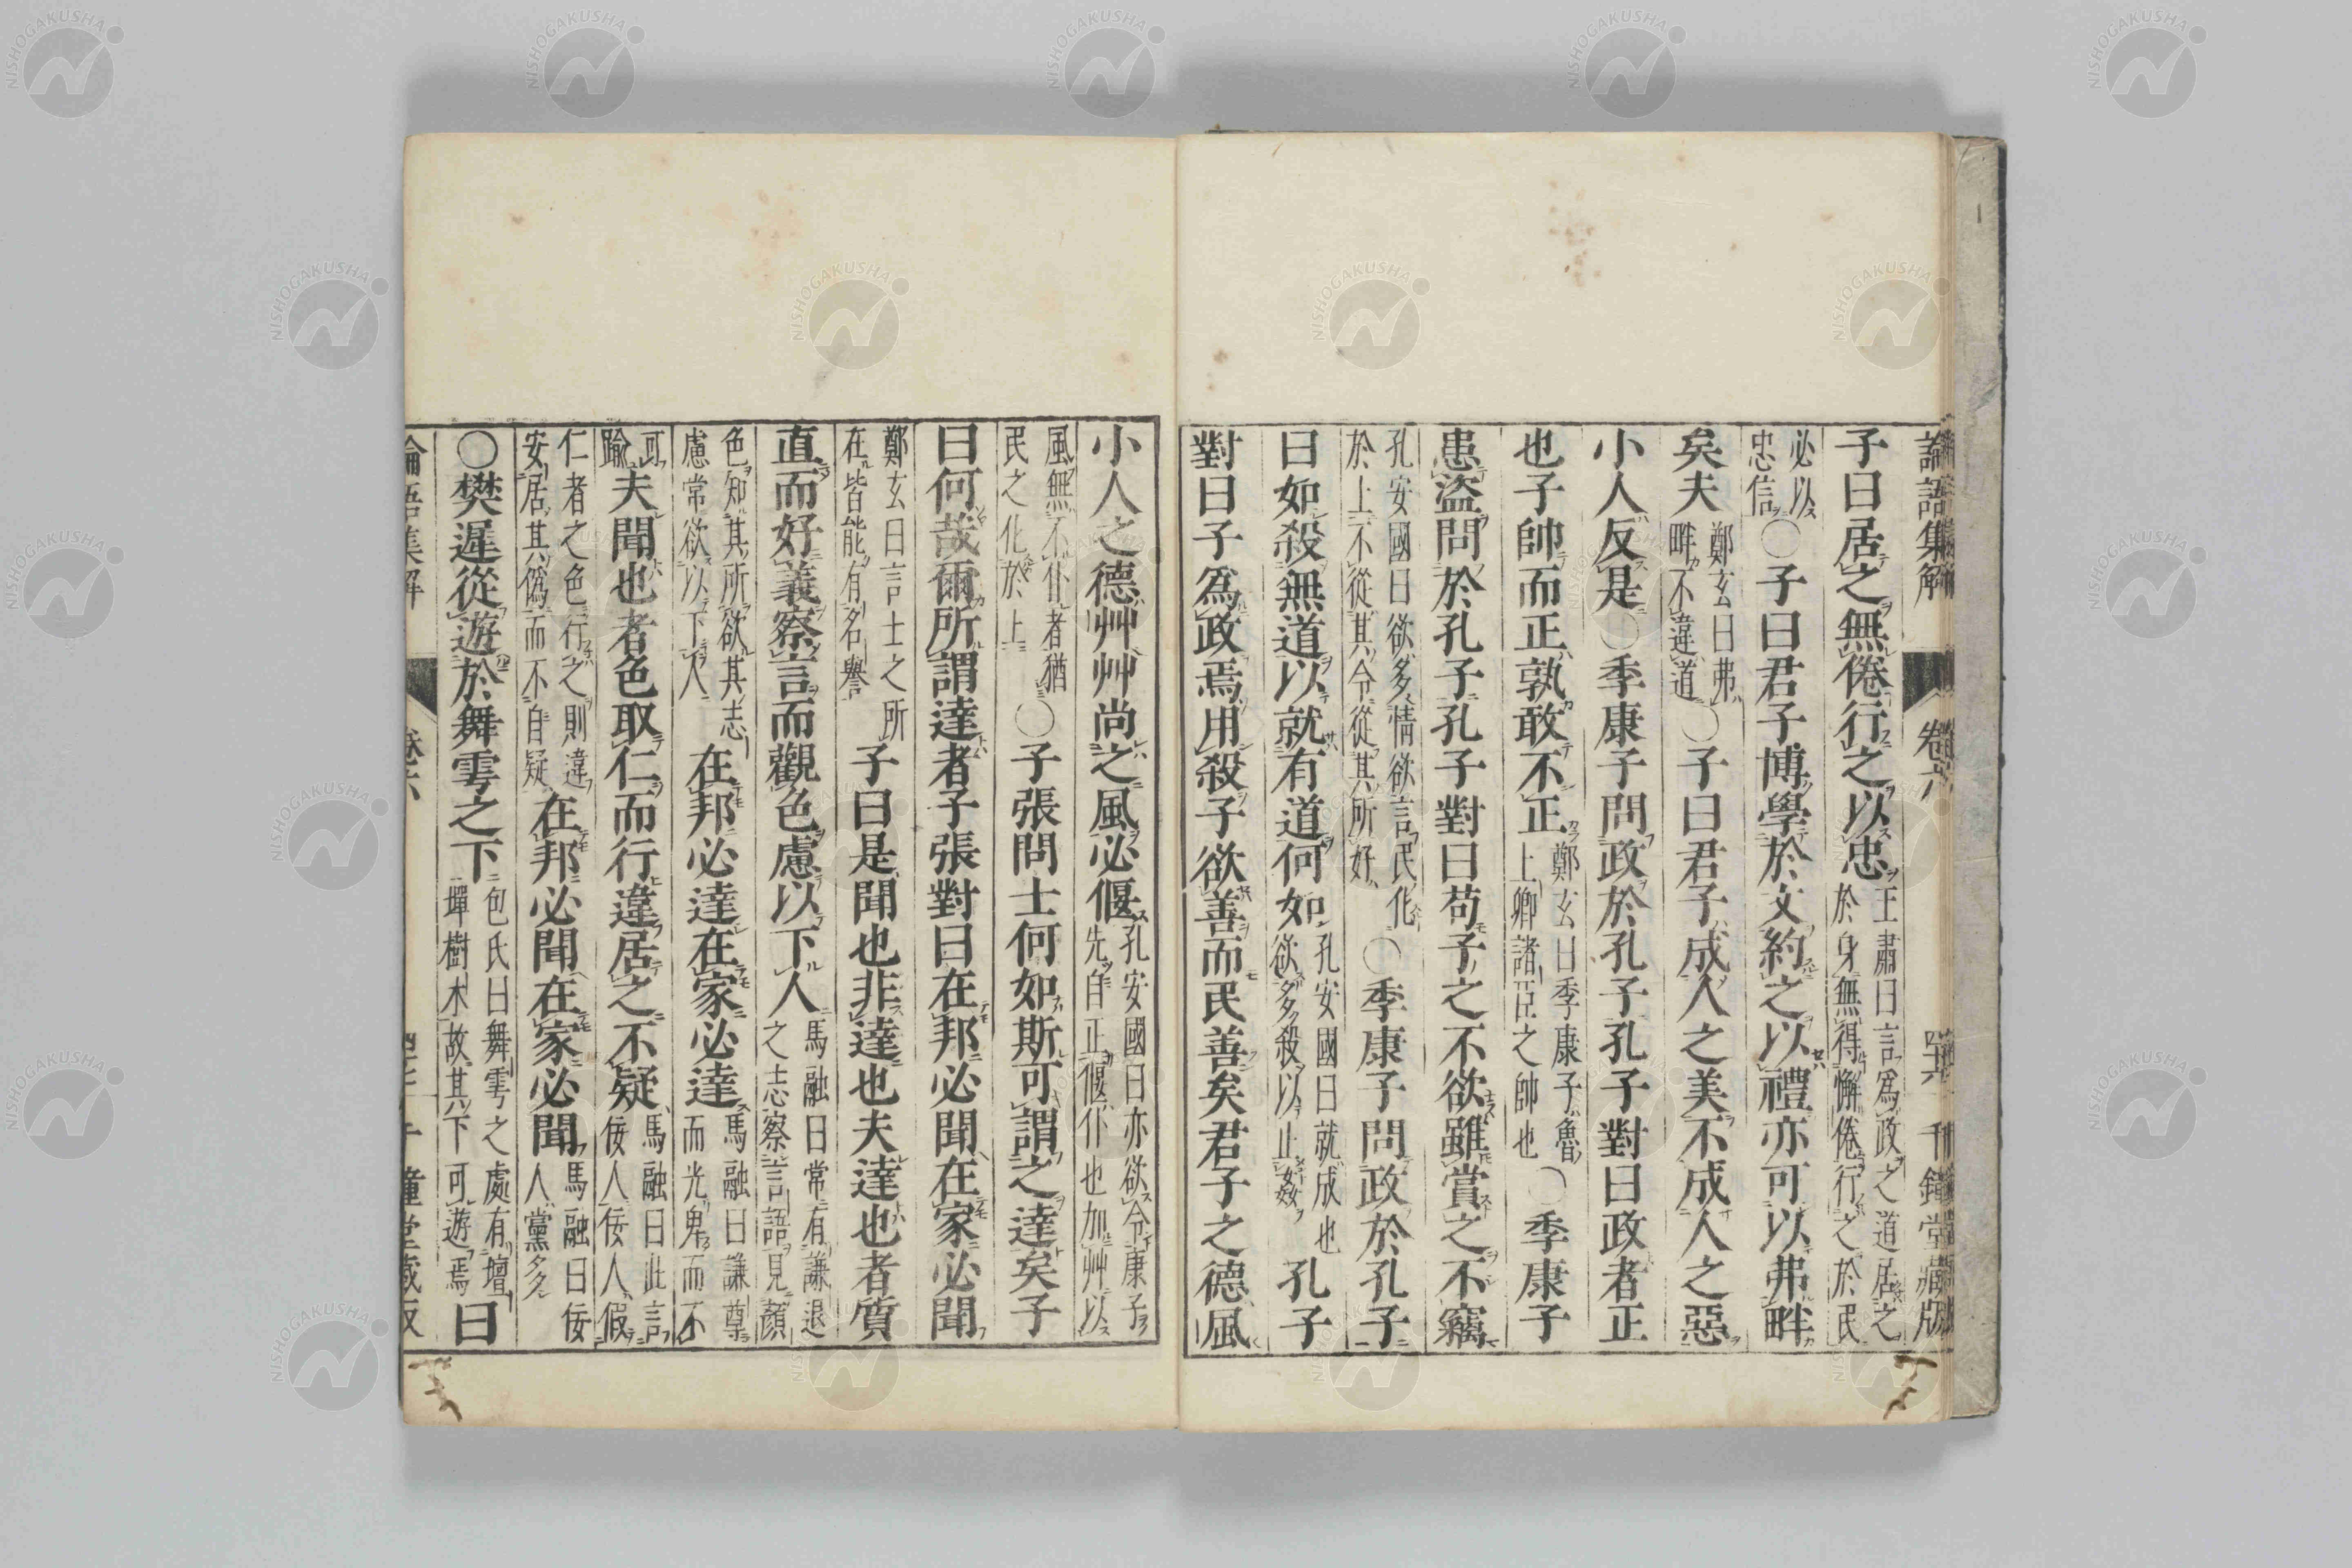 論語集解 卷六 刊 堂藏版
子曰居之無倦行之以忠王肅曰言爲政之道居之於身無得懈倦行之於民
必以忠信〇子曰君子博學於文約之以禮亦可以弗畔
矣夫鄭玄曰弗畔不違道〇子曰君子成人之美不成人之惡
小人反是〇季康子問政於孔子孔子對曰政者正
也子帥而正孰敢不正鄭玄曰季康子魯上卿諸臣之帥也〇季康子
患盜問於孔子孔子對曰苟子之不欲雖賞之不竊
孔安國曰欲多情欲言民化於上不從其令從其所好〇季康子問政於孔子
曰如殺無道以就有道何如孔安國曰就成也欲多殺以止姦孔子
對曰子爲政焉用殺子欲善而民善矣君子之德風
小人之德艸艸尚之風必偃孔安國曰亦欲令康子先自正偃仆也加艸以
風無不仆者猶民之化於上〇子張問士何如斯可謂之達矣子
曰何哉爾所謂達者子張對曰在邦必聞在家必聞
鄭玄曰言士之所在皆能有名譽子曰是聞也非達也夫達也者質
直而好義察言而觀色慮以下人馬融曰常有謙退之志察言語見顏
色知其所欲其志慮常欲以下人在邦必達在家必達馬融曰謙尊而光卑而不
可踰夫聞也者色取仁而行違居之不疑馬融曰此言佞人佞人假
仁者之色行之則違安居其僞而不自疑在邦必聞在家必聞馬融曰佞人黨多
〇樊遲從遊於舞雩之下包氏曰舞雩之處有壇墠樹木故其下可遊焉曰
論語集解 卷六 千鍾堂藏版
NISHOGAKUSHA